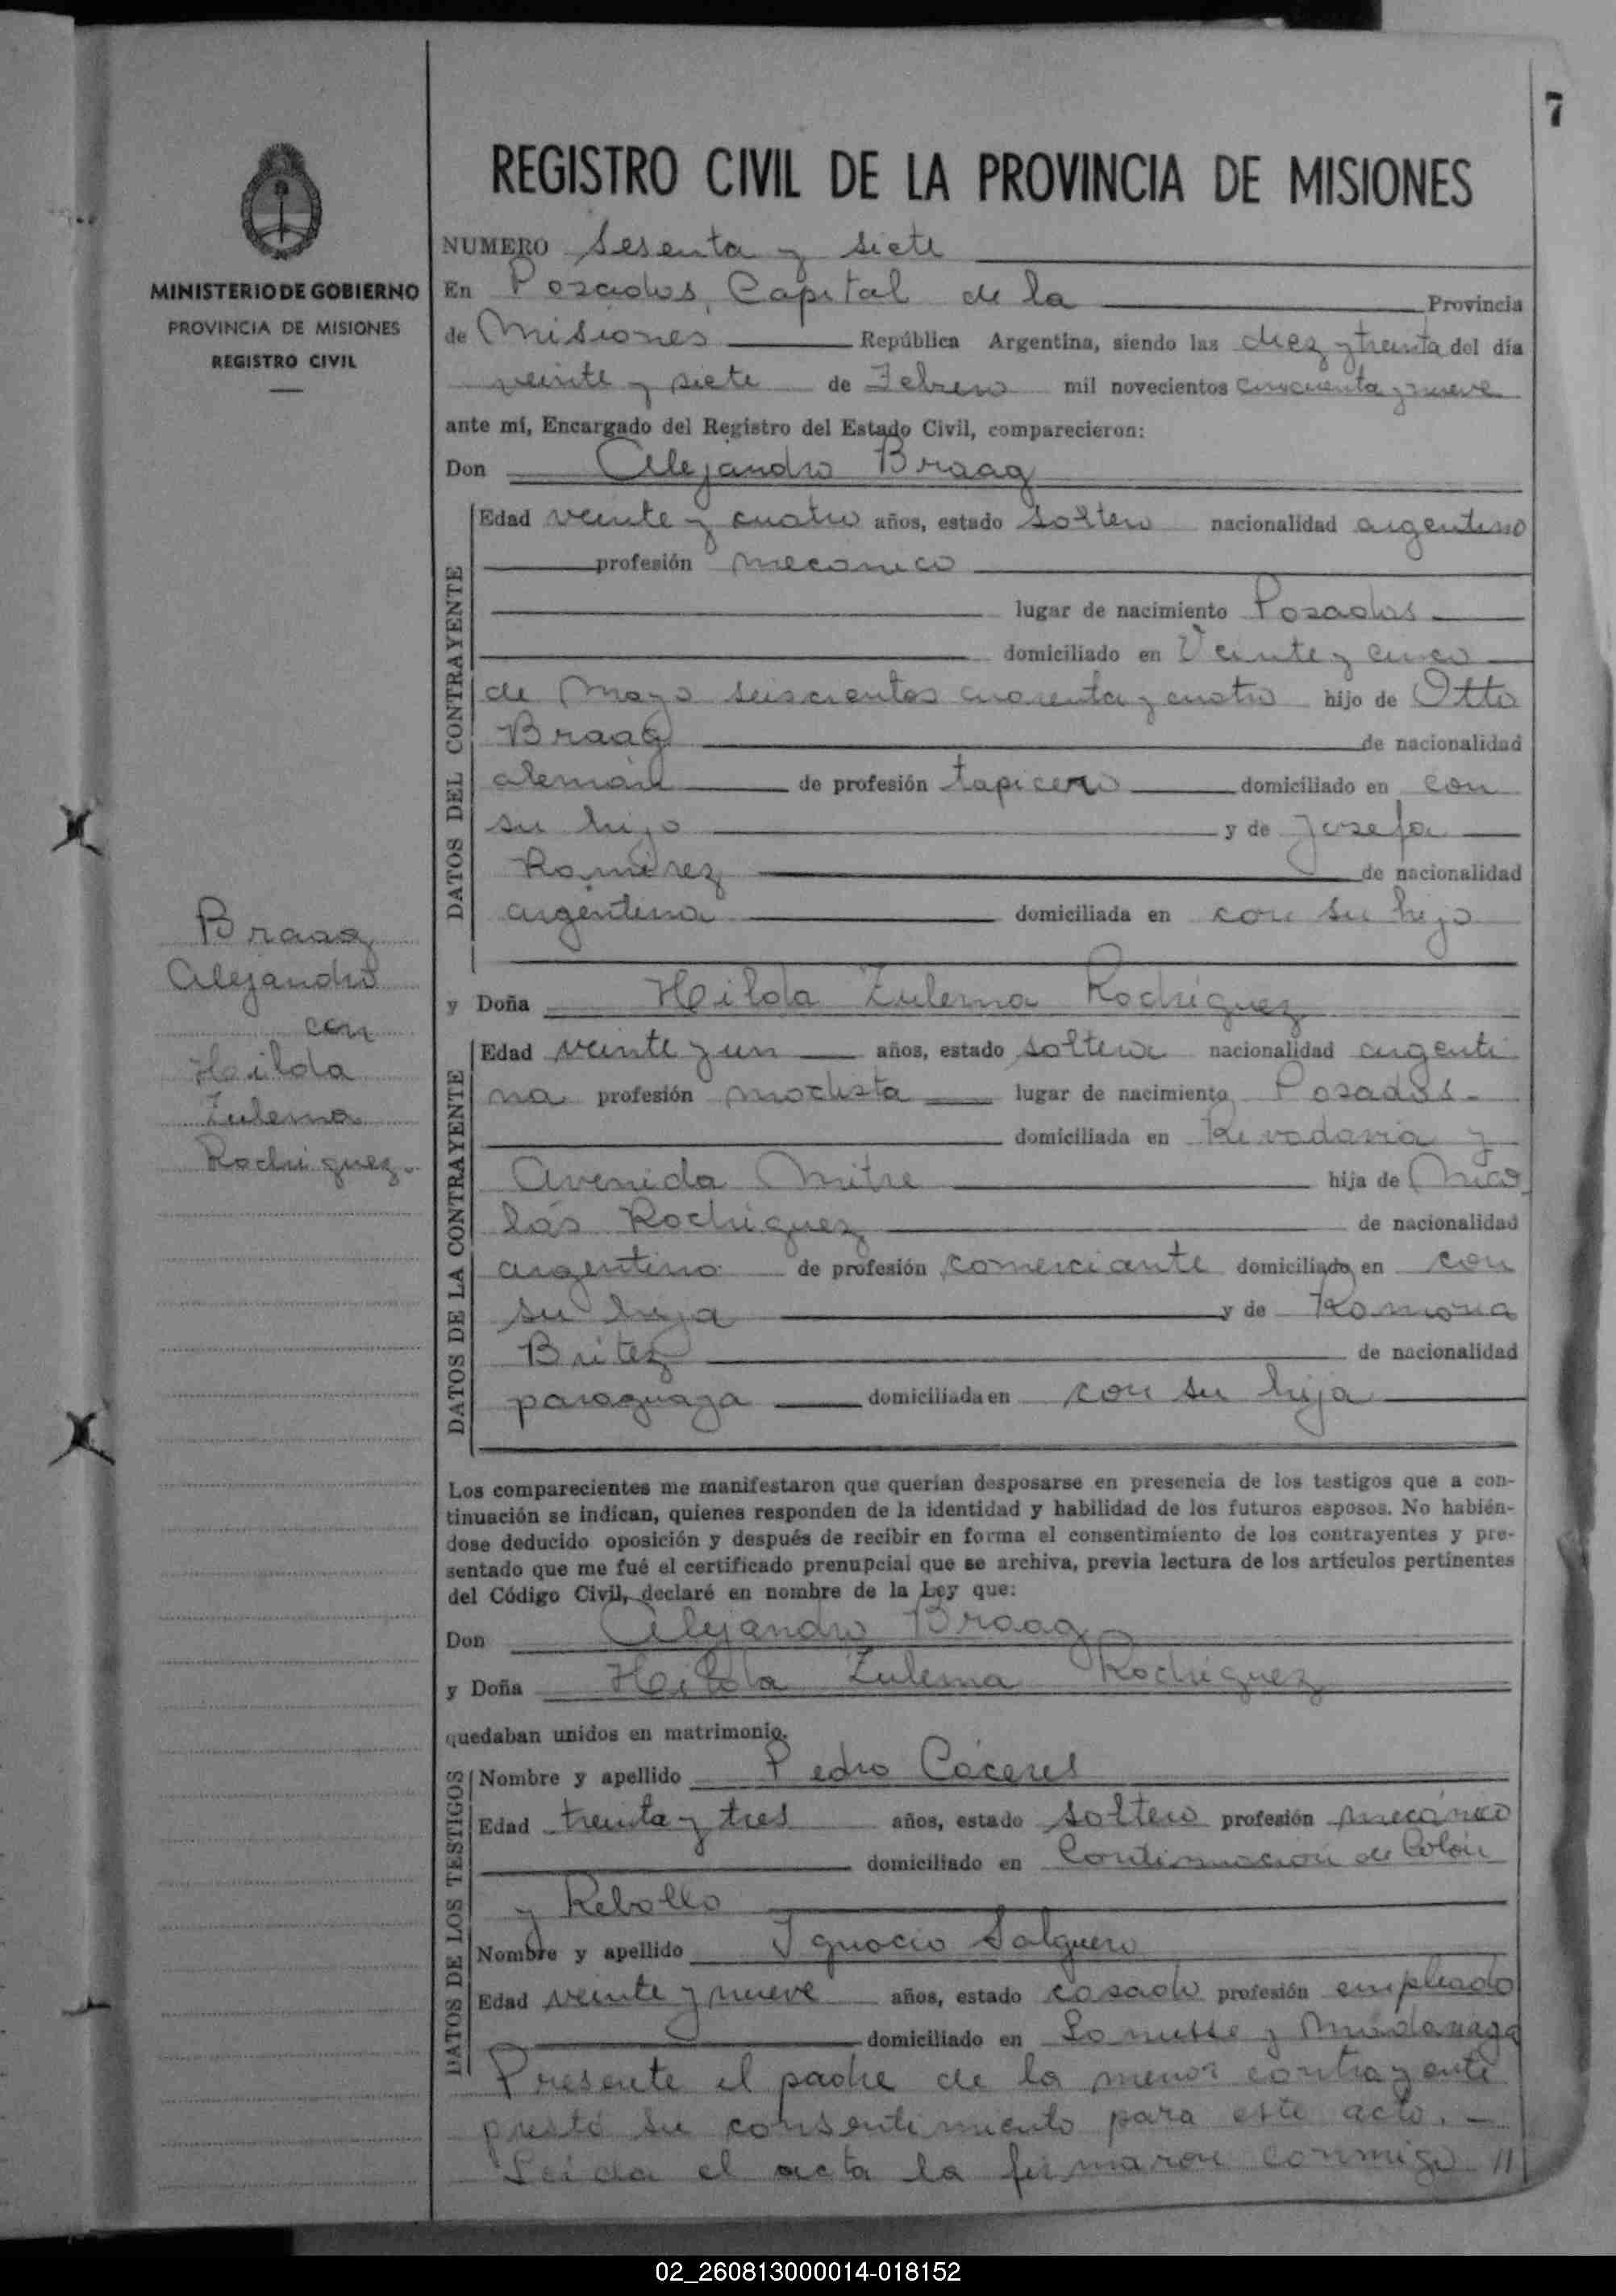 7
REGISTRO CIVIL DE LA PROVINCIA DE MISIONES
MINISTERIO DE GOBIERNO
PROVINCIA DE MISIONES
REGISTRO CIVIL
NUMERO Sesenta y siete
En Posadas, Capital de la Provincia
de Misiones República Argentina, siendo las diez y treinta del día
veinte y siete de Febrero mil novecientos cincuenta y nueve
ante mí, Encargado del Registro del Estado Civil, comparecieron:
Don Alejandro Braag
DATOS DEL CONTRAYENTE
Edad veinte y cuatro años, estado soltero nacionalidad argentino
profesión mecanico
lugar de nacimiento Posadas
domiciliado en Veinte y cinco
de Mayo seiscientos cuarenta y cuatro hijo de Otto
Braag de nacionalidad
alemán de profesión tapicero domiciliado en con
su hijo y de Josefa
Ramirez de nacionalidad
argentina domiciliada en con su hijo
Braag
Alejandro
con
Hilda
Zulema
Rodriguez.
y Doña Hilda Zulema Rodriguez
DATOS DE LA CONTRAYENTE
Edad veinte y un años, estado soltera nacionalidad argenti
na profesión modista lugar de nacimiento Posadas.
domiciliada en Rivadavia y
Avenida Mitre hija de Nico
lás Rodriguez de nacionalidad
argentino de profesión comerciante domiciliado en con
su hija y de Ramona
Britez de nacionalidad
paraguaya domiciliada en con su hija
Los comparecientes me manifestaron que querían desposarse en presencia de los testigos que a con-
tinuación se indican, quienes responden de la identidad y habilidad de los futuros esposos. No habién-
dose deducido oposición y después de recibir en forma el consentimiento de los contrayentes y pre-
sentado que me fué el certificado prenupcial que se archiva, previa lectura de los artículos pertinentes
del Código Civil, declaré en nombre de la Ley que:
Don Alejandro Braag
y Doña Hilda Zulema Rodriguez
quedaban unidos en matrimonio.
DATOS DE LOS TESTIGOS
Nombre y apellido Pedro Cáceres
Edad treinta y tres años, estado soltero profesión mecánico
domiciliado en Continuación de Colón
y Rebollo
Nombre y apellido Ignacio Salguero
Edad veinte y nueve años, estado casado profesión empleado
domiciliado en Lanusse y Madariaga
Presente el padre de la menor contrayente
prestó su consentimiento para este acto. -
Leída el acta la firmaron conmigo //
02_260813000014-018152